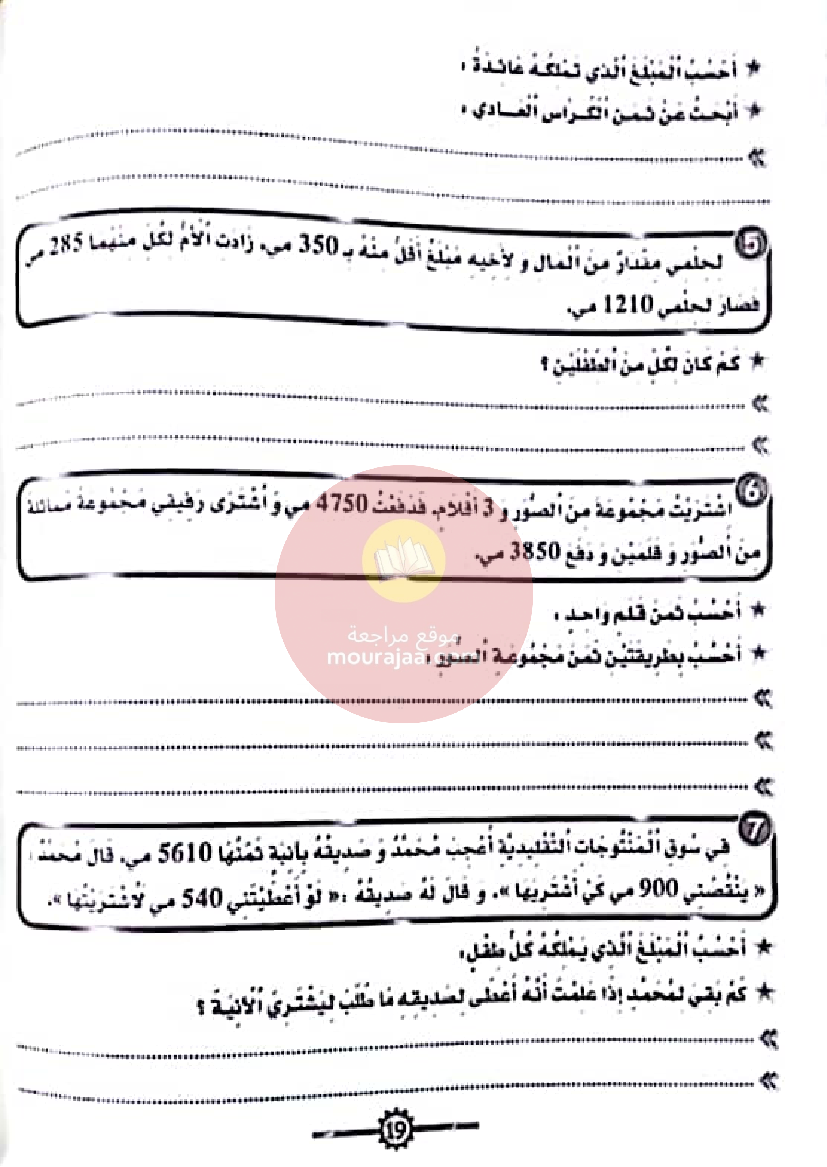 ★ أَحْسُبُ الْمَبْلَغَ الَّذِي تَمْلِكُهُ عَائِدَةُ :
★ أَبْحَثُ عَنْ ثَمَنِ الْكُرَّاسِ الْعَادِي :
5 لِحِلْمِي مِقْدَارٌ مِنَ الْمَالِ وَ لِأَخِيهِ مَبْلَغٌ أَقَلُّ مِنْهُ بِـ 350 مي. زَادَتِ الْأُمُّ لِكُلٍّ مِنْهُمَا 285 مي
فَصَارَ لِحِلْمِي 1210 مي.
★ كَمْ كَانَ لِكُلٍّ مِنَ الطِّفْلَيْنِ ؟
6 اشْتَرَيْتُ مَجْمُوعَةً مِنَ الصُّوَرِ وَ 3 أَقْلَامٍ. فَدَفَعْتُ 4750 مي وَ اشْتَرَى رَفِيقِي مَجْمُوعَةً مُمَاثِلَةً
مِنَ الصُّوَرِ وَ قَلَمَيْنِ وَ دَفَعَ 3850 مي.
★ أَحْسُبُ ثَمَنَ قَلَمٍ وَاحِدٍ :
★ أَحْسُبُ بِطَرِيقَتَيْنِ ثَمَنَ مَجْمُوعَةِ الصُّوَرِ :
موقع مراجعة
mourajaa.com
7 فِي سُوقِ الْمَنْتُوجَاتِ التَّقْلِيدِيَّةِ أُعْجِبَ مُحَمَّدٌ وَ صَدِيقُهُ بِآنِيَةٍ ثَمَنُهَا 5610 مي. قَالَ مُحَمَّدٌ :
« يَنْقُصُنِي 900 مي كَيْ أَشْتَرِيَهَا ». وَ قَالَ لَهُ صَدِيقُهُ : « لَوْ أَعْطَيْتَنِي 540 مي لَاشْتَرَيْتُهَا ».
★ أَحْسُبُ الْمَبْلَغَ الَّذِي يَمْلِكُهُ كُلُّ طِفْلٍ:
★ كَمْ بَقِيَ لِمُحَمَّدٍ إِذَا عَلِمْتَ أَنَّهُ أَعْطَى لِصَدِيقِهِ مَا طَلَبَ لِيَشْتَرِيَ الْآنِيَةَ ؟
19